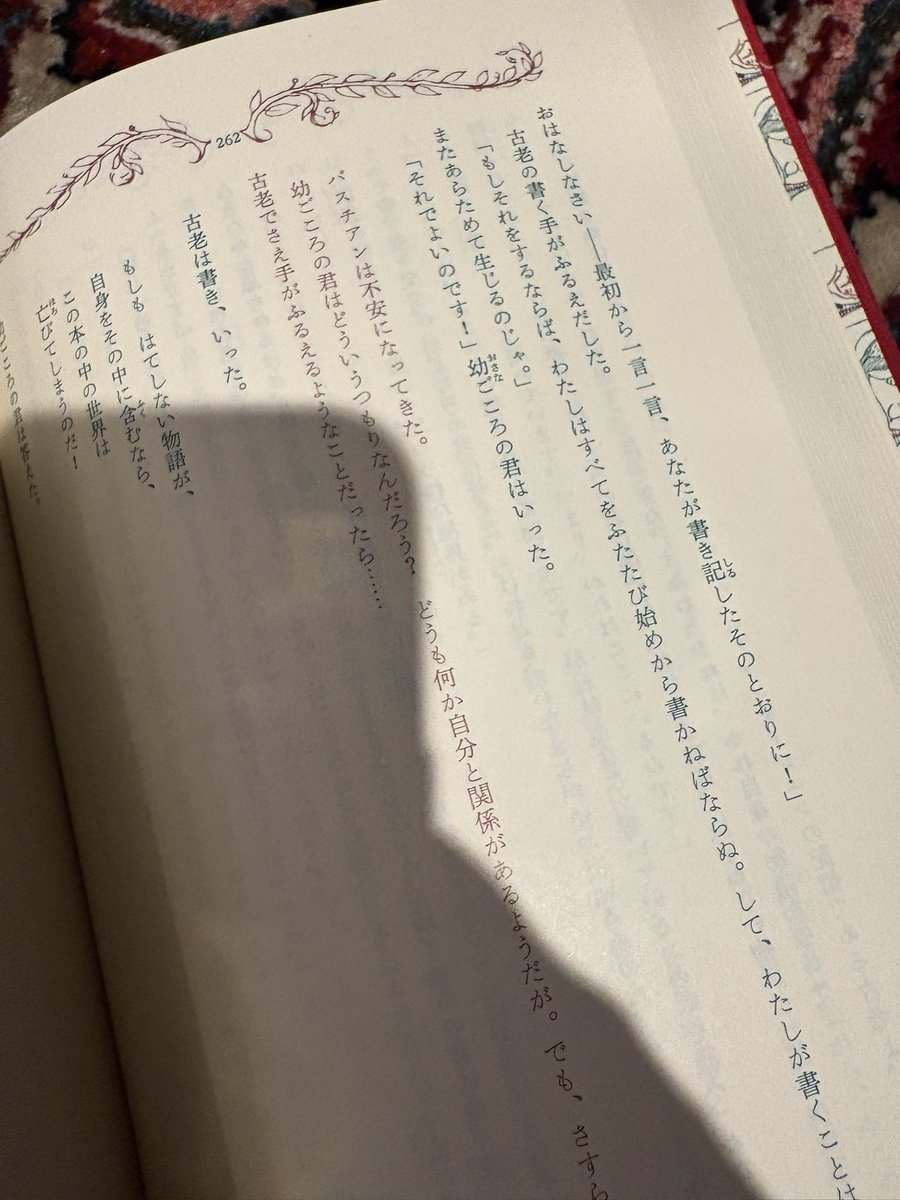 262
おはなしなさい――最初から一言一言、あなたが書き記したそのとおりに！」
古老の書く手がふるえだした。
「もしそれをするならば、わたしはすべてをふたたび始めから書かねばならぬ。して、わたしが書くことは
またあらためて生じるのじゃ。」
「それでよいのです！」幼ごころの君はいった。
バスチアンは不安になってきた。
幼ごころの君はどういうつもりなんだろう？　どうも何か自分と関係があるようだが。でも、さすら
古老でさえ手がふるえるようなことだったら……
古老は書き、いった。
もしも　はてしない物語が、
自身をその中に含むなら、
この本の中の世界は
亡びてしまうのだ！
ごころの君は答えた。